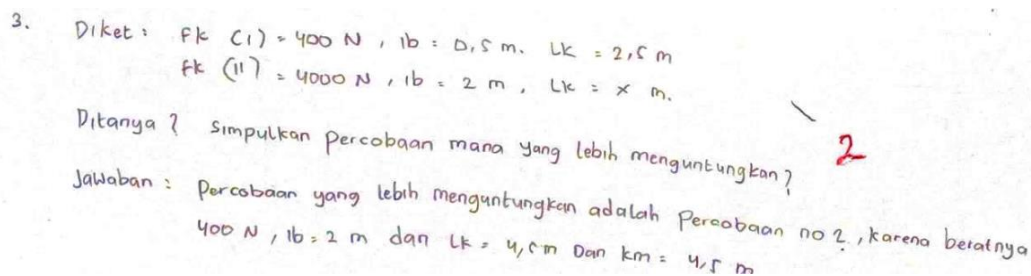 3. Diket : Fk (1) = 400 N , lb = 0,5 m. Lk = 2,5 m
Fk (11) = 4000 N , lb = 2 m , Lk = x m.
Ditanya ? Simpulkan percobaan mana yang lebih menguntungkan ?
2
Jawaban : Percobaan yang lebih menguntungkan adalah Percobaan no 2 , karena beratnya
400 N , lb = 2 m dan Lk = 4,5 m Dan km = 4,5 m